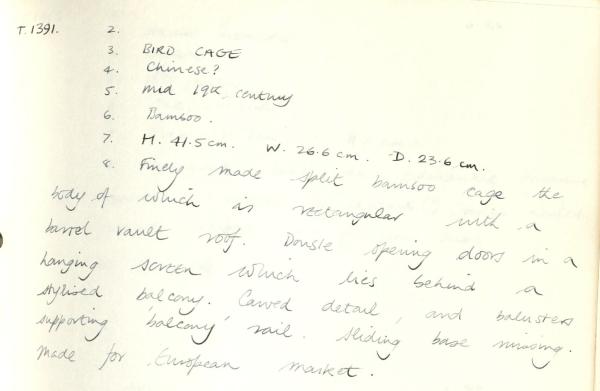 T.1391. 2.
3. BIRD CAGE
4. Chinese?
5. Mid 19th century
6. Bamboo.
7. H. 41.5cm. W. 26.6 cm. D. 23.6 cm.
8. Finely made split bamboo cage the
body of which is rectangular with a
barrel vault roof. Double opening doors in a
hanging screen which lies behind a
stylised 'balcony'. Carved detail, and balusters
supporting 'balcony' rail. Sliding base missing.
Made for European market.